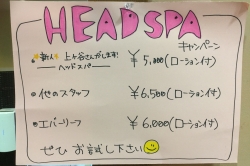 HEADSPA
キャンペーン
新人 上ヶ谷さんがします!
ヘッドスパー ¥5,800(ローション付)
他のスタッフ ¥6,500(ローション付)
エバーリーフ ¥6,000(ローション付)
ぜひ お試し下さい